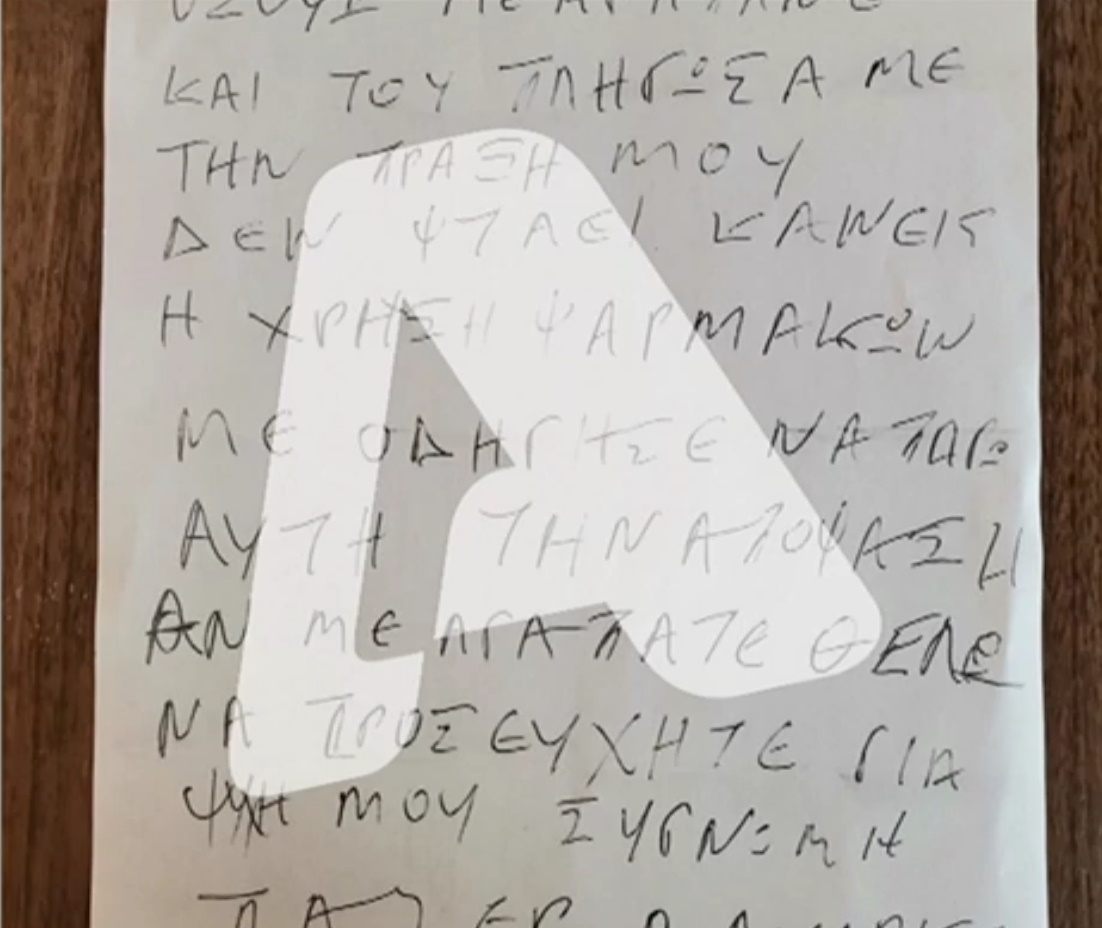 ΚΑΙ ΤΟΥ ΠΛΗΓΩΣΑ ΜΕ
ΤΗΝ ΠΡΑΞΗ ΜΟΥ
ΔΕΝ ΨΤΑΕΙ ΚΑΝΕΙΣ
Η ΧΡΗΣΗ ΨΑΡΜΑΚΩΝ
ΜΕ ΟΔΗΓΗΣΕ ΝΑ ΠΑΡΩ
ΑΥΤΗ ΤΗΝ ΑΠΟΨΑΣΗ
ΑΝ ΜΕ ΑΓΑΠΑΤΕ ΘΕΛΩ
ΝΑ ΠΡΟΣΕΥΧΗΤΕ ΓΙΑ
ΨΥΧΗ ΜΟΥ ΣΥΓΝΩΜΗ